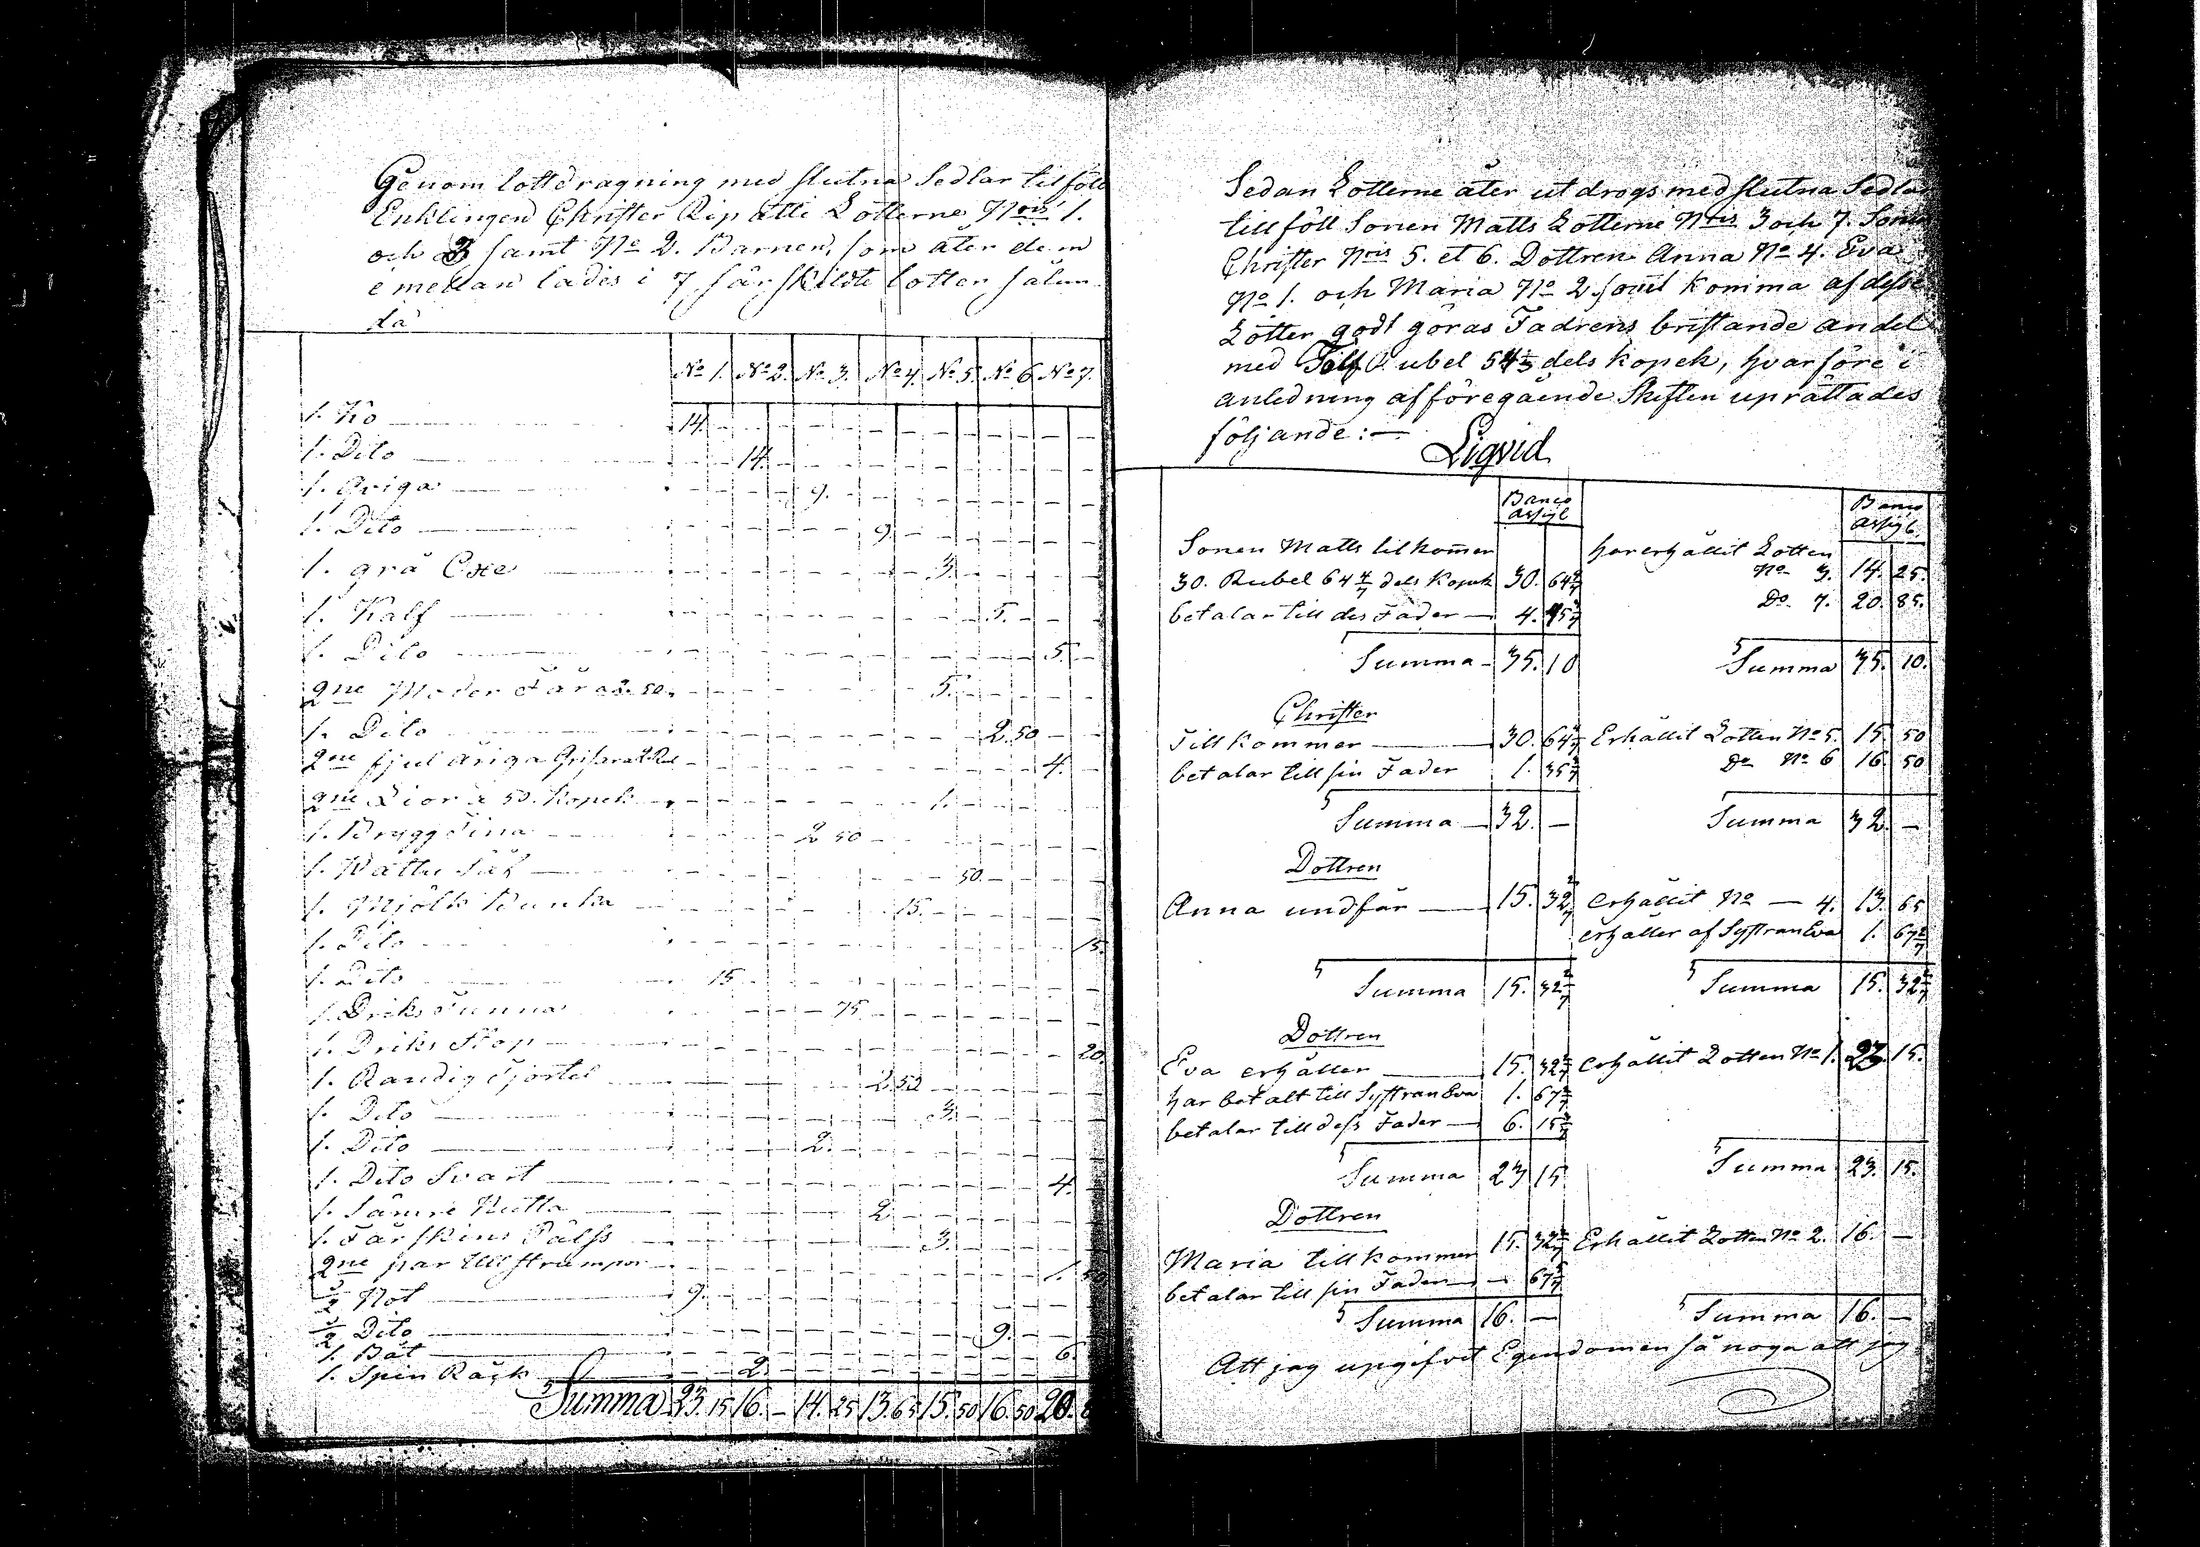 Genom lottdragning med slutna Sedlar tilföll
Enklingen Christer Ripatti Lotterne Nris 1.
och 3 samt No 2. Barnen, som åter dem
emellan lades i 7 särskildte lotter sålun
da
No 1. No 2. No 3. No 4. No 5. No 6 No 7.
1. Ko 14.
1. Dito 14.
1. Qviga 9.
1. Dito 9
1. grå Oxe 3.
1. Kalf 5.
1. Dito 5.
2ne Moder Får a 2. 50. 5.
1. Dito 2 50
2ne fjul åriga Grisar a 2 Rul 4.
2ne a 50. Kopek 1.
1. Brygg Tina 2 50
1. Säk 50.
1. Mjölk Bunka 15.
1. Dito 15.
1. Dito 15
1. Driks Tunna 75
1. Driks Stop 20.
1. Randig Tjortel 2 50
1. Dito 3.
1. Dito 2.
1. Dito Svart 4.
1. Sämre 2
1. Fårskins Pälss 3.
2ne par Ull strumpor 1. 50
1/2 Not 9.
1/2 Dito 9.
1. Båt 6.
1. Spin Råck 2.
Summa 23. 15 16. – 14. 25 13. 65 15. 50 16. 50 20. 8
Sedan Lotterne åter utdrogs med slutna Sedlar
tillföll Sonen Matts Lotterne Nris 3 och 7. Sonen
Christer Nris 5. et 6. Dottren Anna No 4. Eva
No 1. och Maria No 2. samt komma af desse
Lotter godt göras Fadrens bristande andel
med Rubel 54 dels kopek, hvarföre i
anledning af föregående Skiften uprättades
följande: —
Liqvid
Banco
Assigl
Banco
Assigl.
Sonen Matts tilkommer har erhållit Lotten
30. Rubel 64 4/7 dels Kopek 30. 64 4/7 No 3. 14. 25.
betalar till des Fader 4. 45 3/7 Do 7. 20. 85.
Summa 35. 10 Summa 35. 10.
Christer
Till kommer 30. 64 4/7 Erhållit Lotten No 5. 15. 50
betalar till sin Fader 1. 35 3/7 Do No 6 16. 50
Summa 32. — Summa 32 —
Dottren
Anna undfår 15. 32 2/7 erhållit No — 4. 13. 65
erhåller af Systran Eva 1. 67 2/7
Summa 15. 32 2/7 Summa 15. 32 2/7
Dottren
Eva erhåller 15. 32 2/7 erhållit Lotten No 1. 23. 15.
har betalt till Systran Eva 1. 67 2/7
betalar till dess Fader 6. 15 3/7
Summa 23 15 Summa 23. 15.
Dottren
Maria till kommer 15. 32 2/7 Erhållit Lotten No 2. 16. —
betalar till sin Fader — 67 5/7
Summa 16. — Summa 16. —
Att jag upgifvit Egendomen så noga att jag